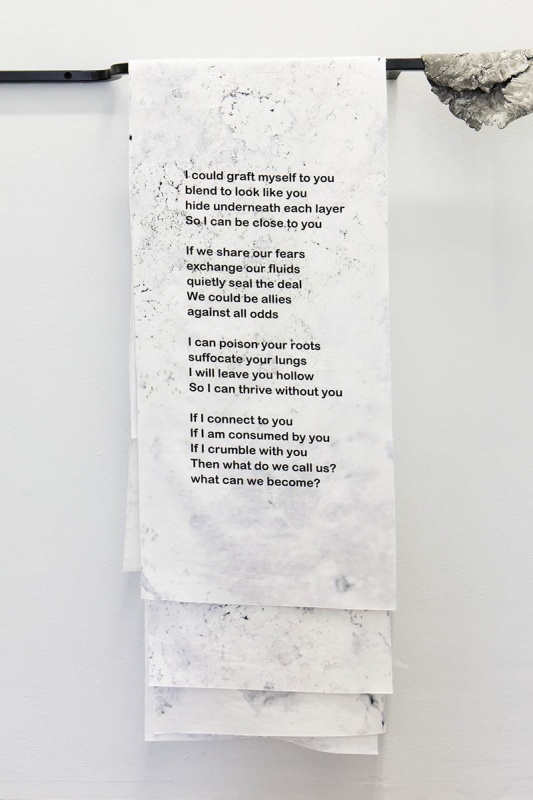 I could graft myself to you
blend to look like you
hide underneath each layer
So I can be close to you
If we share our fears
exchange our fluids
quietly seal the deal
We could be allies
against all odds
I can poison your roots
suffocate your lungs
I will leave you hollow
So I can thrive without you
If I connect to you
If I am consumed by you
If I crumble with you
Then what do we call us?
what can we become?